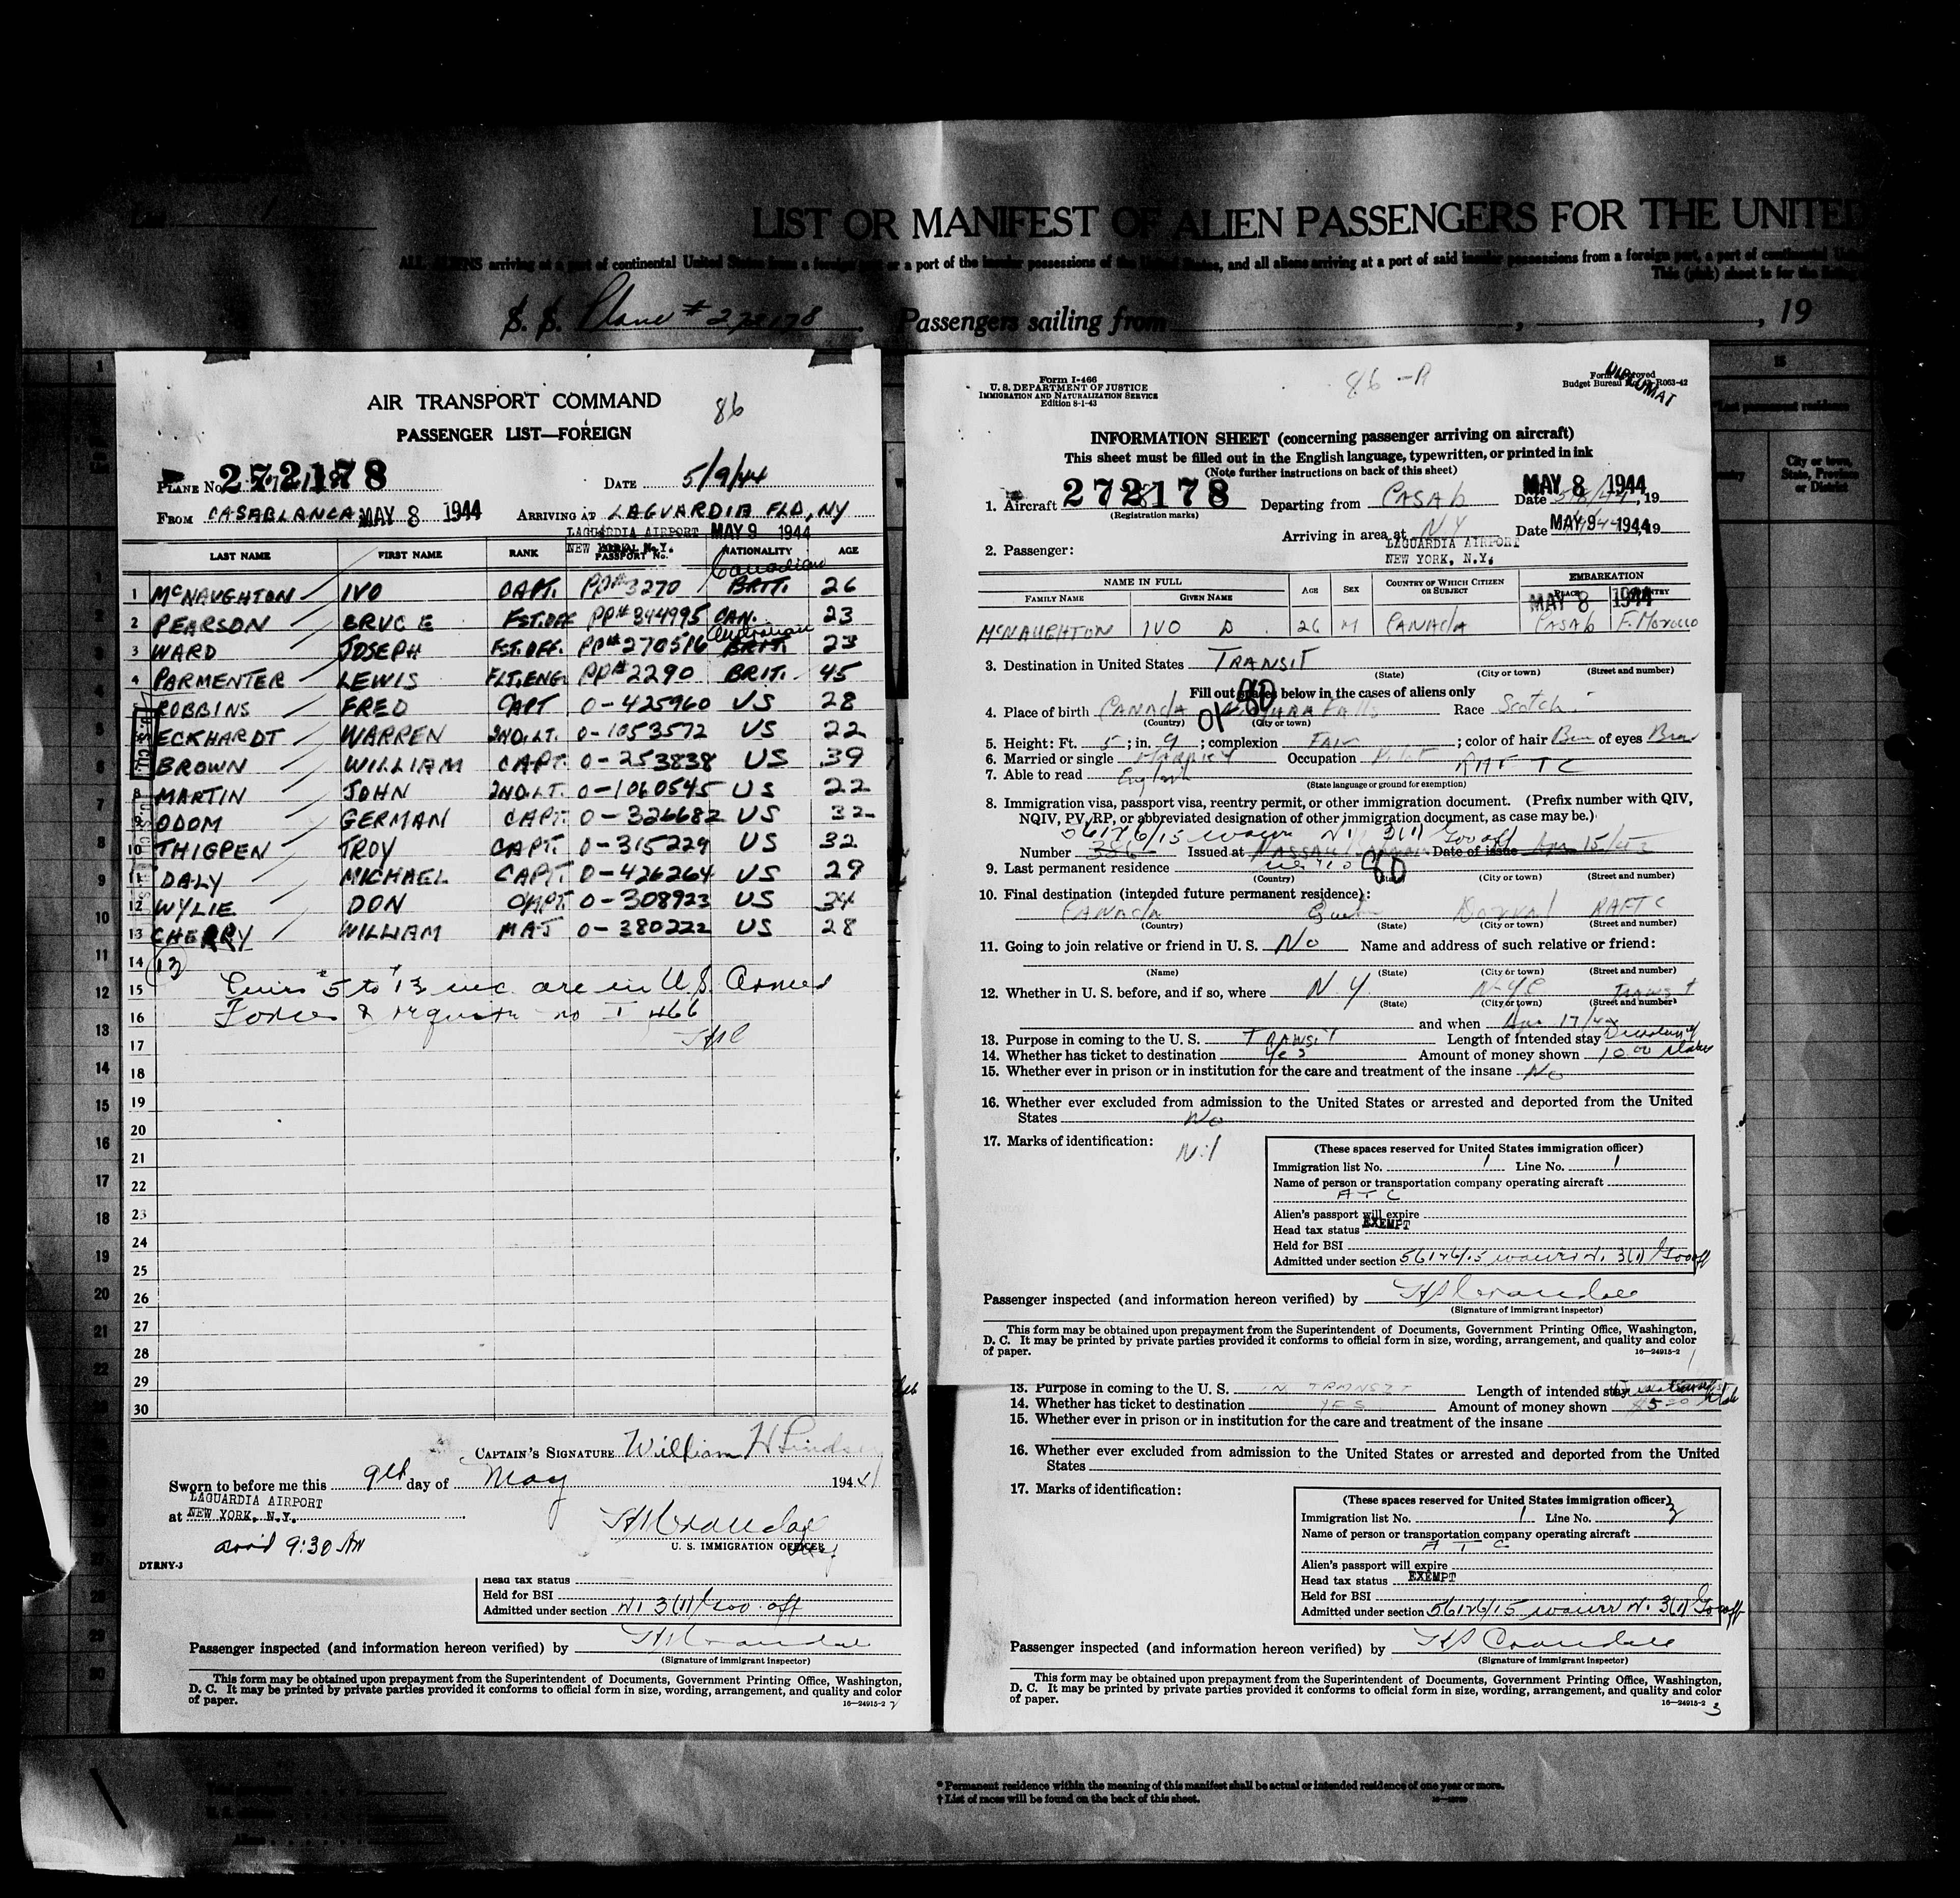 LIST OR MANIFEST OF ALIEN PASSENGERS FOR THE UNITED
ALL ALIENS arriving at a port of continental United States from a foreign port or a port of the insular possessions of the United States, and all aliens arriving at a port of said insular possessions from a foreign port, a port of continental
This (pink) sheet is for the
S. S. Plane # 272178 Passengers sailing from , , 19
AIR TRANSPORT COMMAND 86
PASSENGER LIST—FOREIGN
PLANE NO. 272178 DATE 5/9/44
FROM CASABLANCA MAY 8 1944 ARRIVING AT LAGUARDIA FLD, NY
LAGUARDIA AIRPORT MAY 9 1944
NEW YORK, N.Y.
LAST NAME FIRST NAME RANK PASSPORT No. NATIONALITY AGE
Canadian
1 McNAUGHTON IVO CAPT. PP# 3270 BRIT. 26
2 PEARSON BRUCE FST.OFF PP# 344995 CAN. 23
Australian
3 WARD JOSEPH FST.OFF. PP# 270516 BRIT. 23
4 PARMENTER LEWIS FLT.ENG. PP# 2290 BRIT. 45
ROBBINS FRED CAPT O-425960 US 28
ECKHARDT WARREN 2ND.LT. O-1053572 US 22
BROWN WILLIAM CAPT. O-253838 US 39
8 MARTIN JOHN 2ND.LT. O-1060545 US 22
9 ODOM GERMAN CAPT. O-326682 US 32
10 THIGPEN TROY CAPT. O-315229 US 32
11 DALY MICHAEL CAPT. O-426264 US 29
12 WYLIE DON CAPT. O-308923 US 34
13 CHERRY WILLIAM MAJ O-380222 US 28
14 13
15 Lines 5 to 13 inc. are in U.S. Armed
16 Forces & require no I 466
17
18
19
20
21
22
23
24
25
26
27
28
29
30
CAPTAIN'S SIGNATURE William H Lindsey
Sworn to before me this 9th day of May 1944
LAGUARDIA AIRPORT
at NEW YORK, N.Y.
HSCrandall
U. S. IMMIGRATION OFFICER
arr'd 9:30 AM
DTRNY-3
Head tax status
Held for BSI
Admitted under section N. 3(1) Gov. off
Passenger inspected (and information hereon verified) by HSCrandall
(Signature of immigrant inspector)
This form may be obtained upon prepayment from the Superintendent of Documents, Government Printing Office, Washington,
D. C. It may be printed by private parties provided it conforms to official form in size, wording, arrangement, and quality and color
of paper. 16—24915-2 2
Form I-466
U. S. DEPARTMENT OF JUSTICE
IMMIGRATION AND NATURALIZATION SERVICE
Edition 8-1-43
86-A
Form approved
Budget Bureau No. 43-R063-42
INFORMATION SHEET (concerning passenger arriving on aircraft)
This sheet must be filled out in the English language, typewritten, or printed in ink
(Note further instructions on back of this sheet)
1. Aircraft 272178 Departing from CASAb Date MAY 8 1944, 19
(Registration marks)
Arriving in area at N.Y Date MAY 9 1944, 19
LAGUARDIA AIRPORT
NEW YORK, N.Y.
2. Passenger:
NAME IN FULL AGE SEX COUNTRY OF WHICH CITIZEN OR SUBJECT EMBARKATION
FAMILY NAME GIVEN NAME PLACE COUNTRY
MAY 8 1944
McNAUGHTON IVO D. 26 M CANADA CASAb F. Morocco
3. Destination in United States TRANSIT
(State) (City or town) (Street and number)
Fill out spaces below in the cases of aliens only
4. Place of birth CANADA NIAGARA FALLS Race Scotch
(Country) (City or town)
5. Height: Ft. 5; in. 9; complexion FAIR; color of hair Brn of eyes Brn
6. Married or single Occupation
RAFTC
7. Able to read English
(State language or ground for exemption)
8. Immigration visa, passport visa, reentry permit, or other immigration document. (Prefix number with QIV,
NQIV, PV, RP, or abbreviated designation of other immigration document, as case may be.)
56126/15 waiver N. 3(1) Gov off
Number 386 Issued at NASSAU Date of issue
9. Last permanent residence
(Country) (State) (City or town) (Street and number)
10. Final destination (intended future permanent residence):
CANADA Dorval RAFTC
(Country) (State) (City or town) (Street and number)
11. Going to join relative or friend in U. S. No Name and address of such relative or friend:
(Name) (State) (City or town) (Street and number)
12. Whether in U. S. before, and if so, where N.Y. N.Y.C Transit
(State) (City or town) (Street and number)
and when Apr 17/
13. Purpose in coming to the U. S. TRANSIT Length of intended stay
14. Whether has ticket to destination Yes Amount of money shown 10.00
15. Whether ever in prison or in institution for the care and treatment of the insane No
16. Whether ever excluded from admission to the United States or arrested and deported from the United
States No
17. Marks of identification: Nil
(These spaces reserved for United States immigration officer)
Immigration list No. 1 Line No. 1
Name of person or transportation company operating aircraft
ATC
Alien's passport will expire
Head tax status EXEMPT
Held for BSI
Admitted under section 56126/15 waiver N. 3(1) Gov off
Passenger inspected (and information hereon verified) by HSCrandall
(Signature of immigrant inspector)
This form may be obtained upon prepayment from the Superintendent of Documents, Government Printing Office, Washington,
D. C. It may be printed by private parties provided it conforms to official form in size, wording, arrangement, and quality and color
of paper. 16—24915-2 1
13. Purpose in coming to the U. S. IN TRANSIT Length of intended stay
14. Whether has ticket to destination YES Amount of money shown
15. Whether ever in prison or in institution for the care and treatment of the insane
16. Whether ever excluded from admission to the United States or arrested and deported from the United
States
17. Marks of identification:
(These spaces reserved for United States immigration officer)
Immigration list No. 1 Line No. 3
Name of person or transportation company operating aircraft
ATC
Alien's passport will expire
Head tax status EXEMPT
Held for BSI
Admitted under section 56126/15 waiver N. 3(1) Gov off
Passenger inspected (and information hereon verified) by HSCrandall
(Signature of immigrant inspector)
This form may be obtained upon prepayment from the Superintendent of Documents, Government Printing Office, Washington,
D. C. It may be printed by private parties provided it conforms to official form in size, wording, arrangement, and quality and color
of paper. 16—24915-2 3
* Permanent residence within the meaning of this manifest shall be actual or intended residence of one year or more.
† List of races will be found on the back of this sheet.